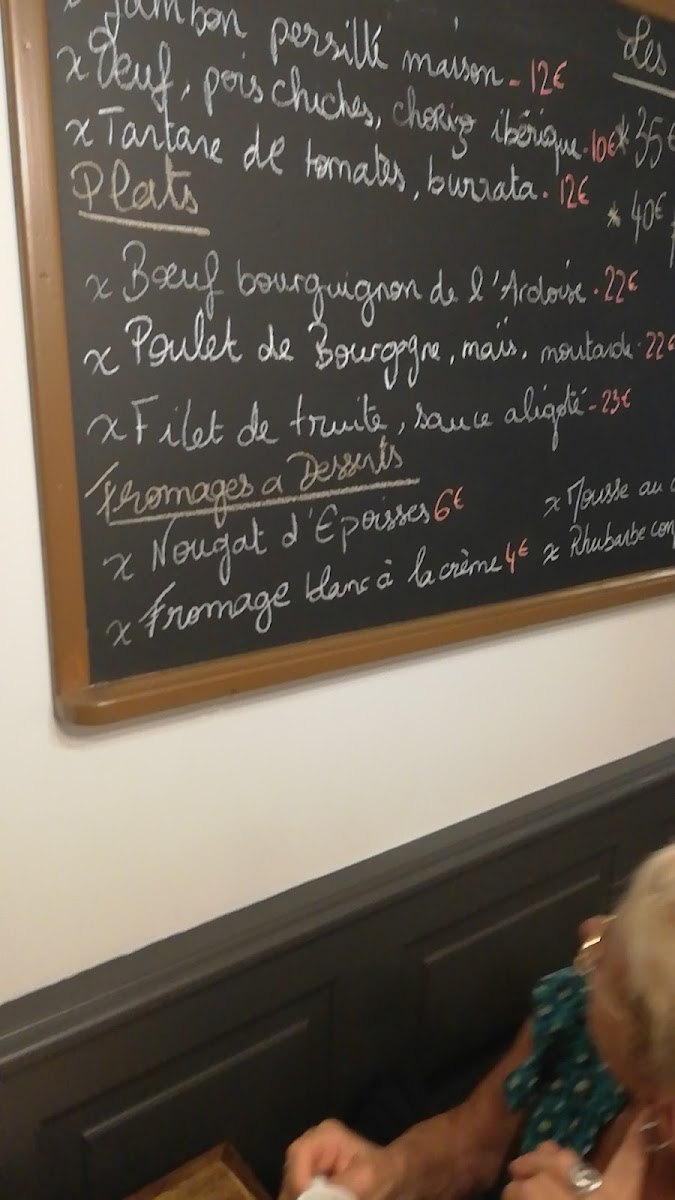 x Jambon persillé maison - 12€
x Oeuf, pois chiches, chorizo ibérique - 10€
x Tartare de tomates, burrata - 12€
Plats
x Bœuf bourguignon de l'Ardoise - 22€
x Poulet de Bourgogne, maïs, moutarde - 22€
x Filet de truite, sauce aligoté - 23€
Fromages & Desserts
x Nougat d'Epoisses 6€
x Fromage blanc à la crème 4€
Les
* 35€
* 40€
x Mousse au
x Rhubarbe